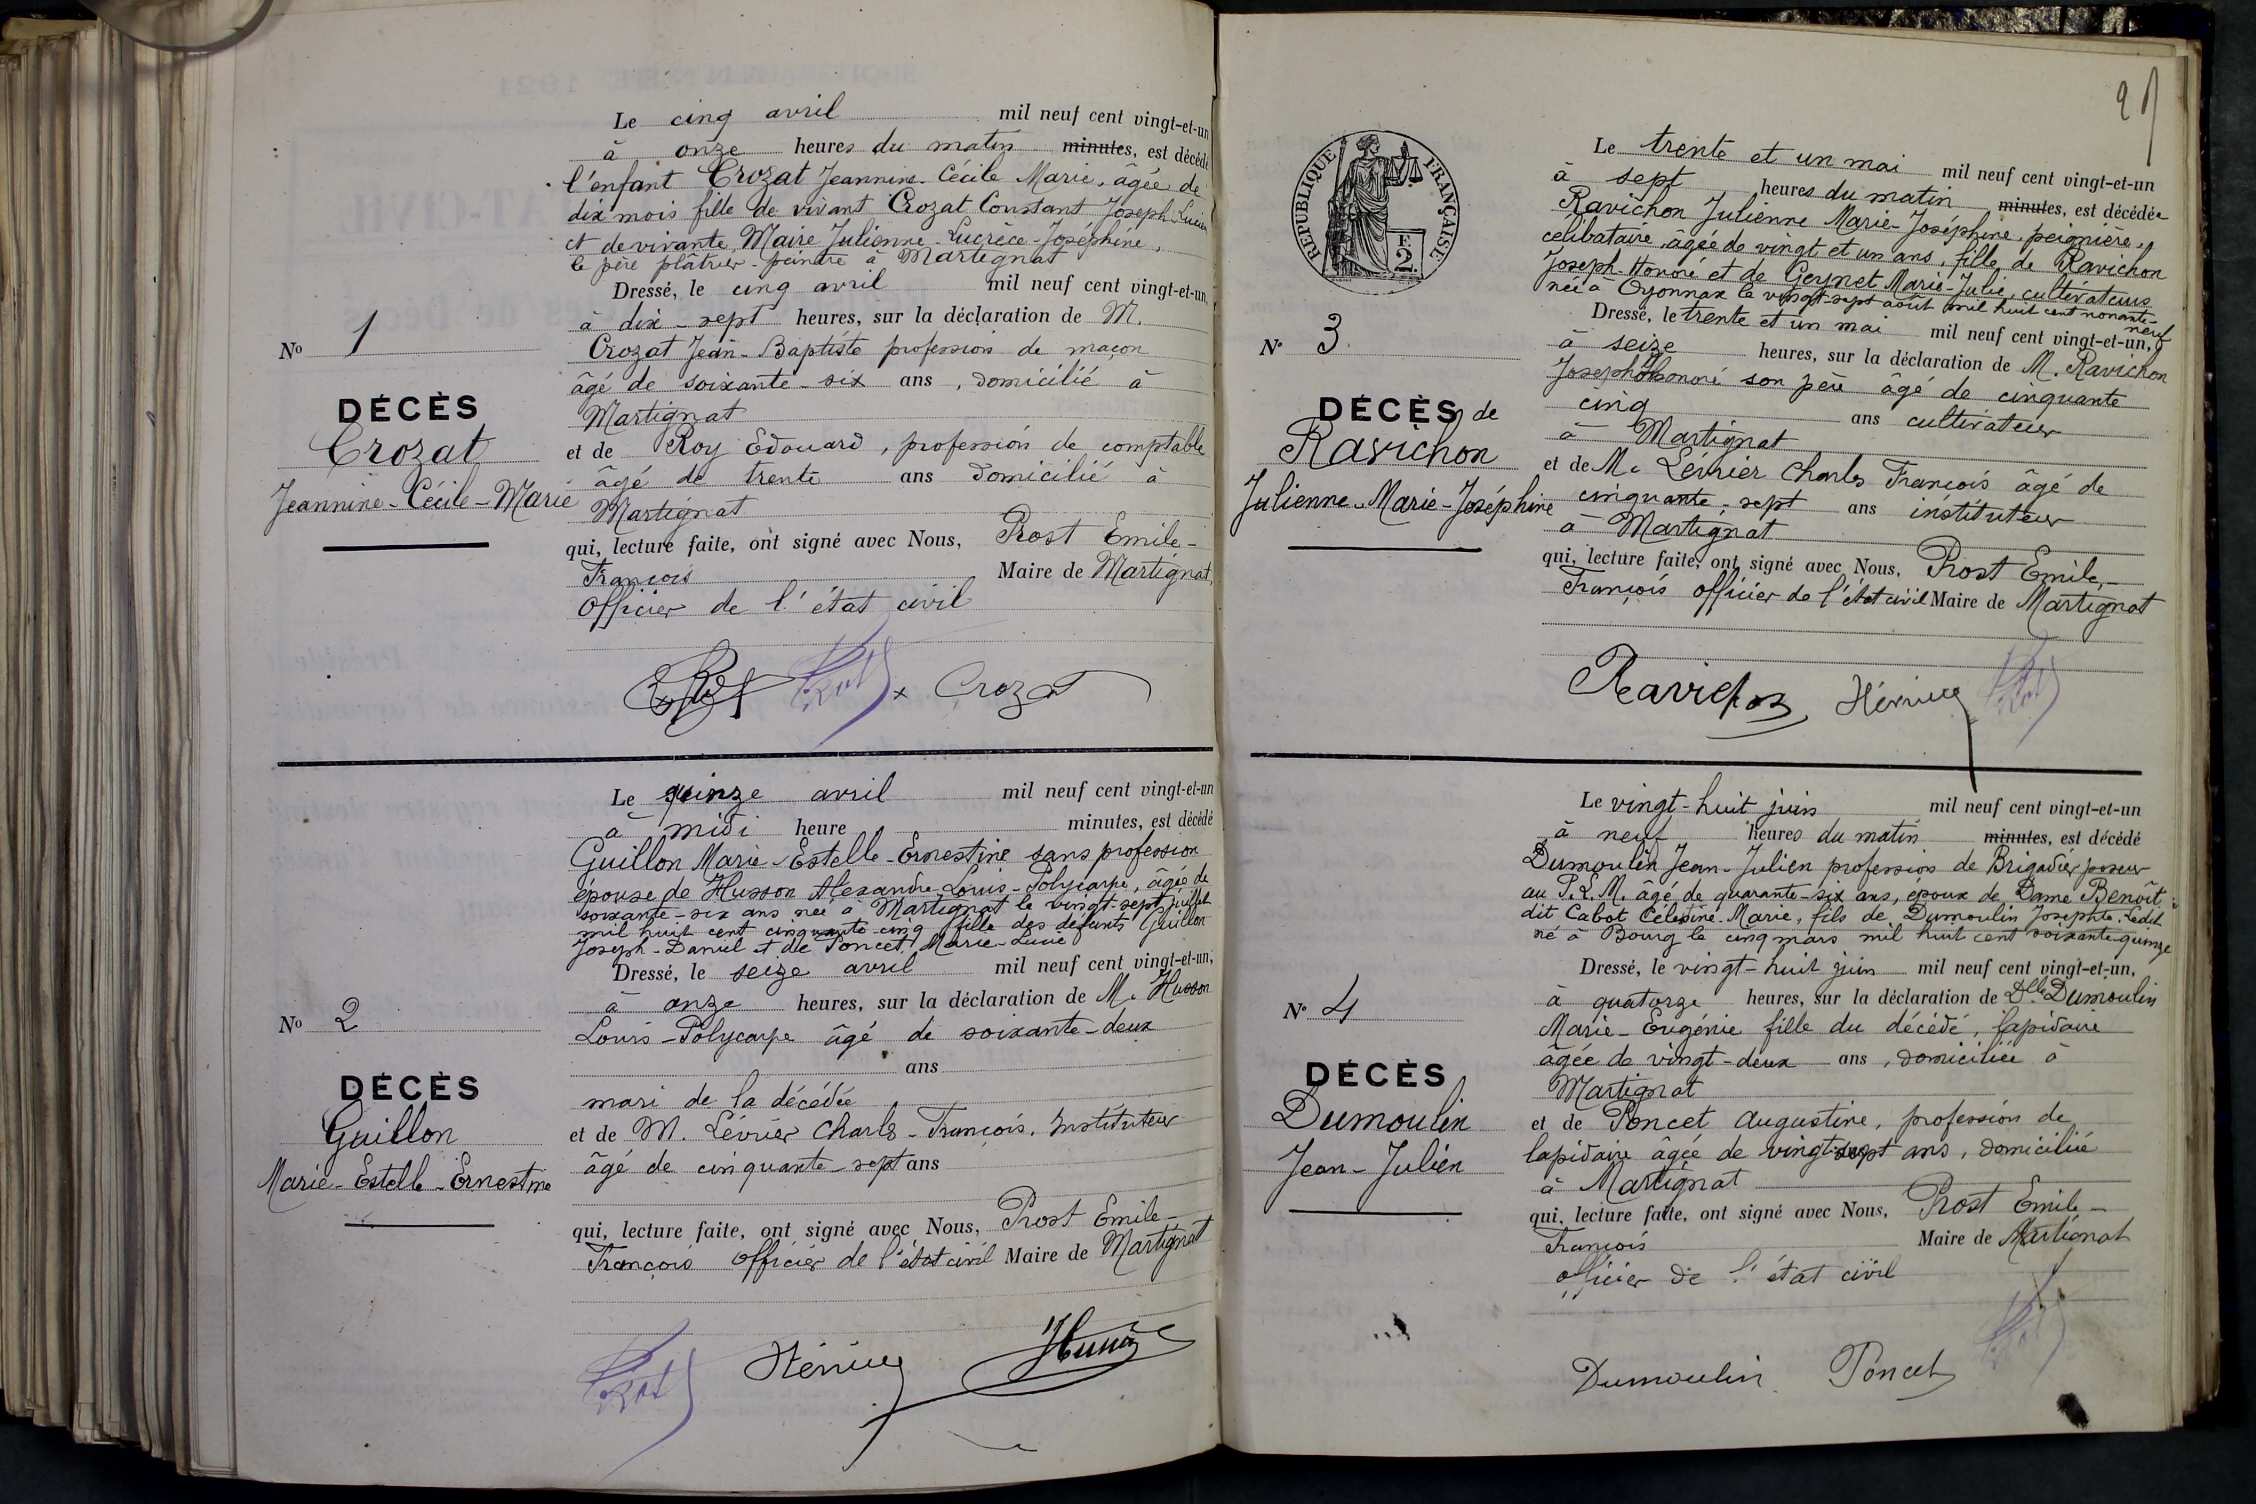 Le cinq avril mil neuf cent vingt-et-un
à onze heures du matin minutes, est décédé
l'enfant Crozat Jeannine-Cécile Marie, âgée de
dix mois fille de vivant Crozat Constant Joseph Lucien
et de vivante Maire Julienne-Lucrèce-Joséphine,
le père plâtrier-peintre à Martignat
Dressé, le cinq avril mil neuf cent vingt-et-un,
à dix-sept heures, sur la déclaration de M.
Crozat Jean-Baptiste profession de maçon
âgé de soixante-six ans, domicilié à
Martignat
et de Roy Edouard, profession de comptable
âgé de trente ans domicilié à
Martignat
qui, lecture faite, ont signé avec Nous, Prost Emile-
François Maire de Martignat,
Officier de l'état civil
No 1
DÉCÈS
Crozat
Jeannine-Cécile-Marie
Crozat
Le quinze avril mil neuf cent vingt-et-un
à midi heure minutes, est décédé
Guillon Marie-Estelle-Ernestine sans profession
épouse de Husson Alexandre-Louis-Polycarpe, âgée de
soixante-six ans née à Martignat le vingt-sept juillet
mil huit cent cinquante-cinq fille des défunts Guillon
Joseph-Daniel et de Poncet Marie-Lucie
Dressé, le seize avril mil neuf cent vingt-et-un,
à onze heures, sur la déclaration de M. Husson
Louis-Polycarpe âgé de soixante-deux
ans
mari de la décédée
et de M. Lévrier Charles-François, Instituteur
âgé de cinquante-sept ans
qui, lecture faite, ont signé avec Nous, Prost Emile-
François Officier de l'état civil Maire de Martignat
No 2
DÉCÈS
Guillon
Marie-Estelle-Ernestine
Husson
RÉPUBLIQUE FRANÇAISE
F.
2
Le trente et un mai mil neuf cent vingt-et-un
à sept heures du matin minutes, est décédée
Ravichon Julienne Marie-Joséphine, peignière,
célibataire âgée de vingt et un ans, fille de Ravichon
Joseph-Honoré et de Geynet Marie-Julie, cultivateurs
née à Oyonnax le vingt-sept août mil huit cent nonante-
neuf
Dressé, le trente et un mai mil neuf cent vingt-et-un,
à seize heures, sur la déclaration de M. Ravichon
Joseph Honoré son père âgé de cinquante
cinq ans cultivateur
à Martignat
et de M. Lévrier Charles François âgé de
cinquante-sept ans instituteur
à Martignat
qui, lecture faite, ont signé avec Nous, Prost Emile-
François officier de l'état civil Maire de Martignat
No 3.
DÉCÈS de
Ravichon
Julienne-Marie-Joséphine
Ravichon
Le vingt-huit juin mil neuf cent vingt-et-un
à neuf heures du matin minutes, est décédé
Dumoulin Jean-Julien profession de Brigadier poseur
au P.L.M. âgé de quarante-six ans, époux de Dame Benoît
dit Cabot Célestine-Marie, fils de Dumoulin Josephte. Ledit
né à Bourg le cinq mars mil huit cent soixante-quinze
Dressé, le vingt-huit juin mil neuf cent vingt-et-un,
à quatorze heures, sur la déclaration de Dlle Dumoulin
Marie-Eugénie fille du décédé, lapidaire
âgée de vingt-deux ans, domiciliée à
Martignat
et de Poncet Augustine, profession de
lapidaire âgée de vingt-sept ans, domiciliée
à Martignat
qui, lecture faite, ont signé avec Nous, Prost Emile-
François Maire de Martignat
officier de l'état civil
No 4
DÉCÈS
Dumoulin
Jean-Julien
Dumoulin Poncet